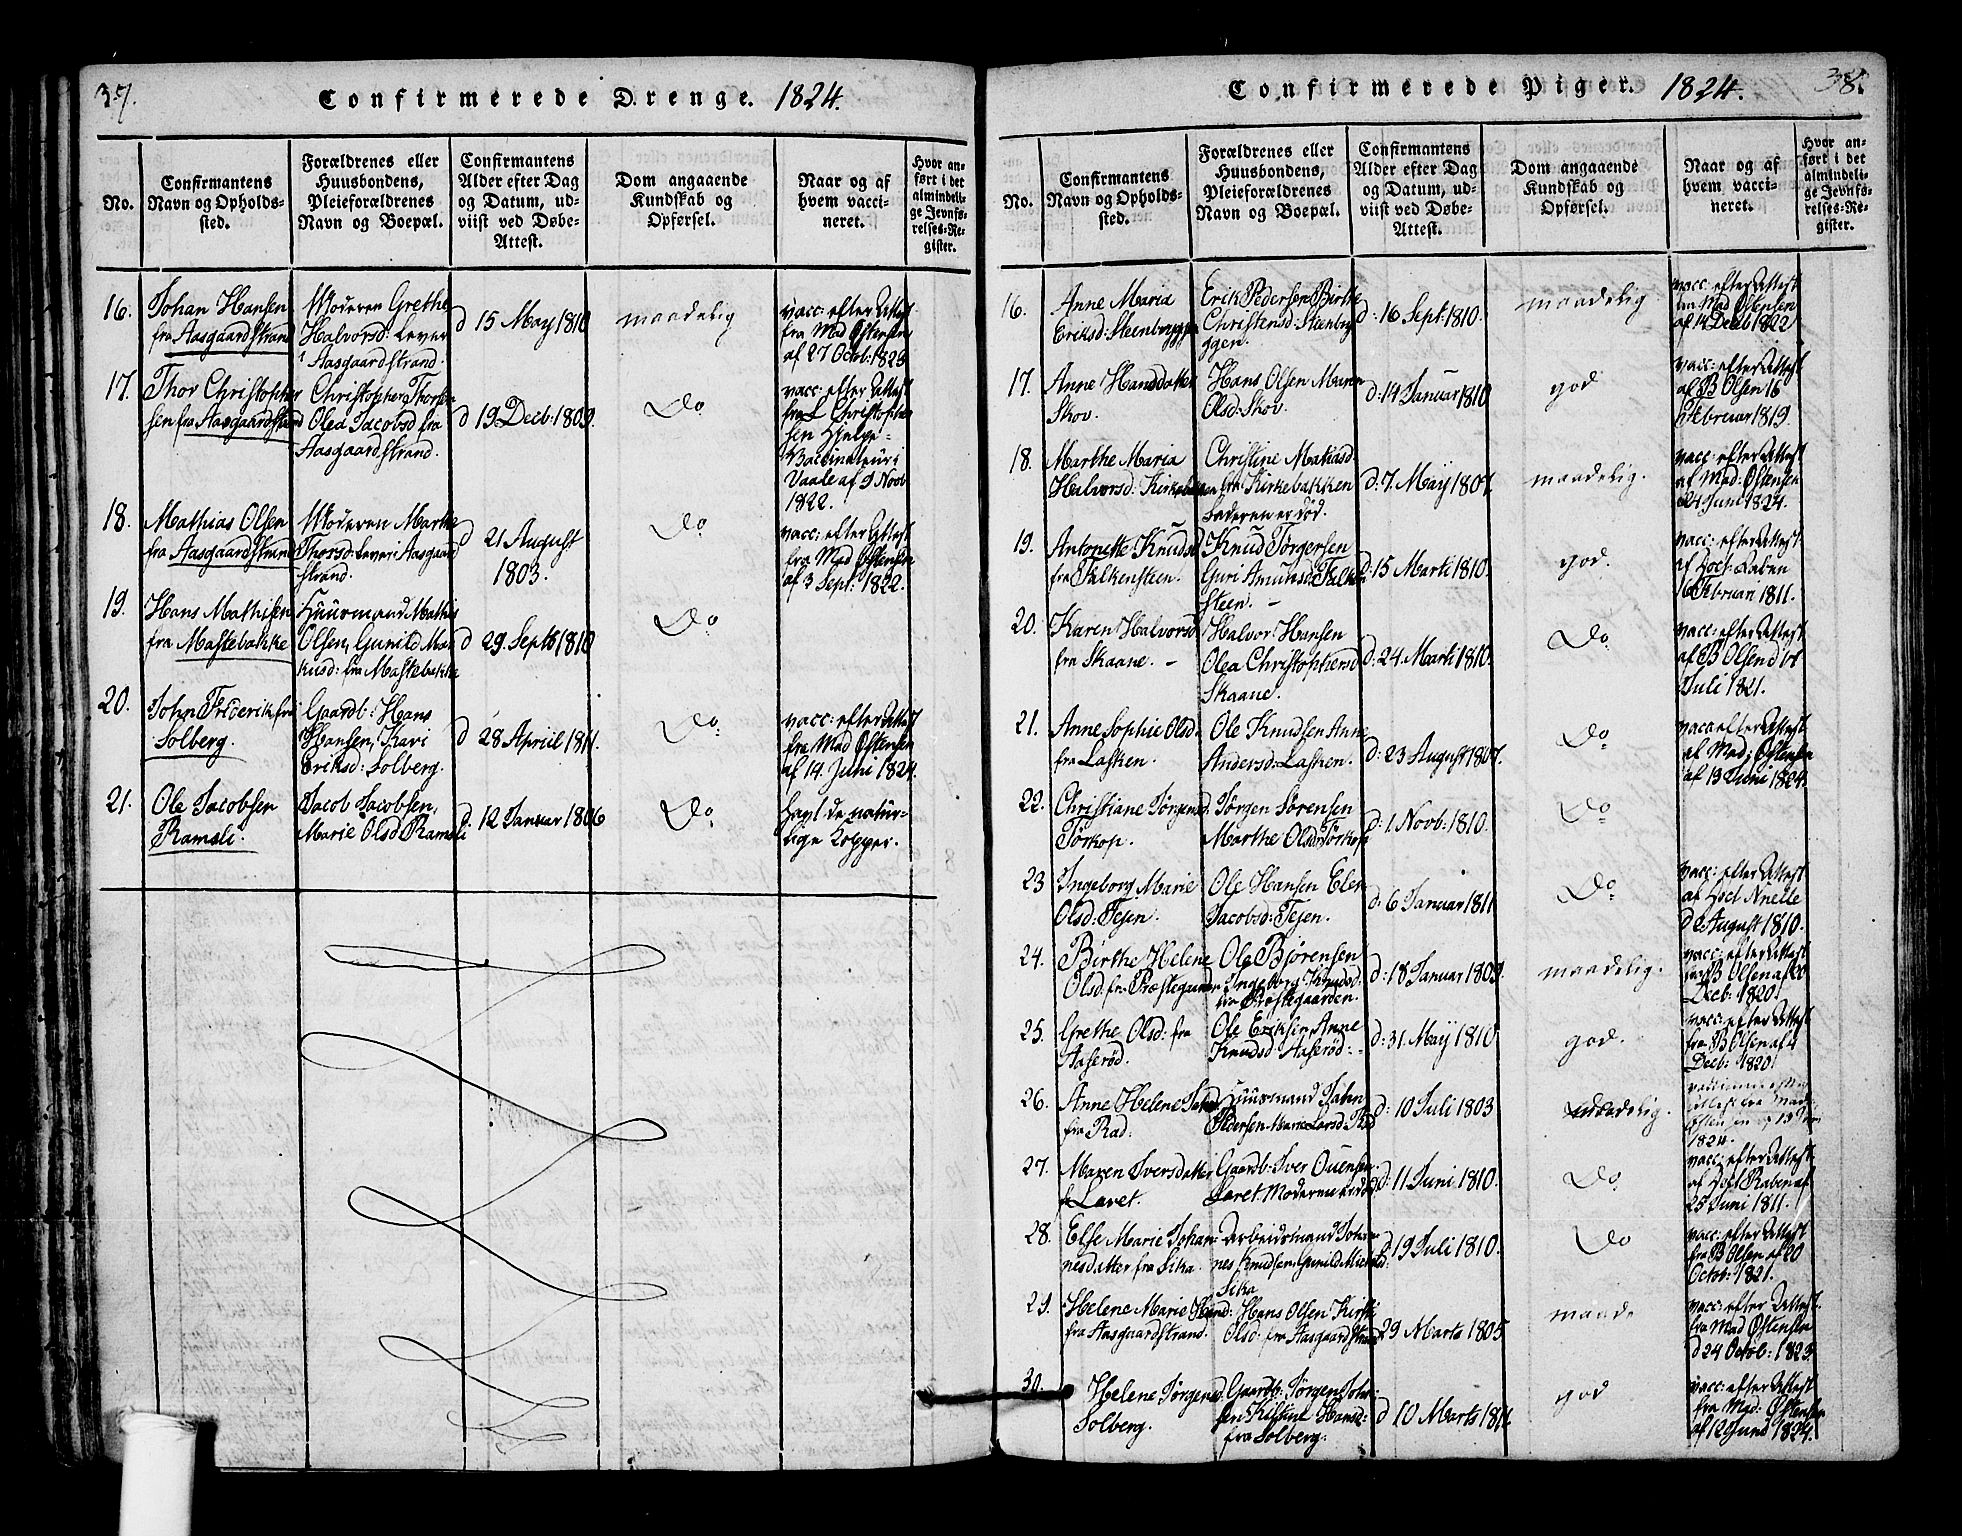 37.
Confirmerede Drenge. 1824.
No.
Confirmantens
Navn og Opholds-
sted.
Forældrenes eller
Huusbondens,
Pleieforældrenes
Navn og Boepæl.
Confirmantens
Alder efter Dag
og Datum, ud-
viist ved Døbe-
Attest.
Dom angaaende
Kundskab og
Opførsel.
Naar og af
hvem vacci-
neret.
Hvor an-
ført i det
almindeli-
ge Jevnfø-
relses-Re-
gister.
16.
Johan Hansen
fra Aasgaardstrand
Moderen Grethe
Halvorsd: Lever
i Aasgaardstrand.
d 15 May 1810
maadelig
vacc: efter Attest
fra Mad Østensen
af 27 Octob: 1823
17.
Thor Christopher
sen fra Aasgaardstrand
Christopher Thorsen
Olea Jacobsd fra
Aasgaardstrand.
d 19 Decb: 1809.
Do
vacc: efter Attest
fra L Christopher
sen Hjelpe-
Vaccinateur i
Vaale af 9 Novb
1822.
18.
Mathias Olsen
fra Aasgaardstrand
Moderen Marthe
Thorsd: Lever i Aasgaard
strand.
d 21 August
1803.
Do
vacc: efter Attest
fra Mad Østensen
af 3 Sept: 1822.
19.
Hans Mathisen
fra Mastebakke
Huusmand Mathis
Olsen, Gunild Mar
kusd: fra Mastebakke
d 29. Septb 1810
Do
20.
John Friderik fra
Solberg.
Gaardb: Hans
Hansen, Kari
Eriksd: Solberg.
d 28 April 1811.
Do
vacc: efter Attest
fra Mad Østensen
af 14. Juni 1824.
21.
Ole Jacobsen
Ramsli.
Jacob Jacobsen,
Marie Olsd Ramsli
d. 12 Januar 1806
Do
havt de natur-
lige Kopper.
38.
Confirmerede Piger. 1824.
No.
Confirmantens
Navn og Opholds-
sted.
Forældrenes eller
Huusbondens,
Pleieforældrenes
Navn og Boepæl.
Confirmantens
Alder efter Dag
og Datum, ud-
viist ved Døbe-
Attest.
Dom angaaende
Kundskab og
Opførsel.
Naar og af
hvem vacci-
neret.
Hvor an-
ført i det
almindeli-
ge Jevnfø-
relses-Re-
gister.
16.
Anne Maria
Eriksd: Steenbryggen
Erik Pedersen Birthe
Christensd: Steenbry
ggen.
d: 16 Sept: 1810.
maadelig
vacc: efter Attest
fra Mad Østensen
af 14 Decb 1822
17.
Anne Hansdatter
Skov.
Hans Olsen Maren
Olsd: Skov.
d: 14 Januar 1810
god
vacc: efter Attest
af B Olsen 16
Februar 1819.
18.
Marthe Maria
Halvorsd: Kirkebakken
Christine Matiasd
fra Kirkebakken
Faderen er død.
d: 7 May 1807.
maadelig.
vacc: efter Attest
af Mad: Østensen
24 Juni 1824.
19.
Antonette Knudsd
fra Falkensteen.
Knud Tørgersen
Guri Amunsd: Falken
steen. -
d: 15 Marti 1810.
god.
vacc: efter Attest
af Doct: Raben
16 Februari 1811.
20.
Karen Halvorsd
fra Skaane. -
Halvor Hansen
Olea Christophersd
Skaane.
d: 24 Marti 1810.
Do
vacc: efter Attest
af B Olsen d
Juli 1821.
21.
Anne Sophie Olsd.
fra Lasken.
Ole Knudsen Anne
Andersd: Lasken.
d: 23 August 1807.
Do
vacc efter Attest
af Mad: Østensen
af 13 Juni 1824.
22.
Christiane Jørgensd.
Tørkop.
Jørgen Sørensen
Marthe Olsd: Tørkop
d: 1. Novb: 1810.
Do
23
Ingeborg Marie
Olsd: Tejen.
Ole Hansen Elen
Jacobsd: Tejen.
d: 6 Januar 1811
Do
vacc: efter Attest
af Doct
d 2 August 1810.
24.
Birthe Helene
Olsd. fra Præstegaarden
Ole Bjørensen
Ingeborg Knudsd
fra Præstegaarden.
d: 18 Januar 1809.
maadelig.
vacc: efter Attest
fra B Olsen af 20
Decb: 1820.
25.
Grethe Olsd: fra
Aaserød.
Ole Eriksen Anne
Knudsd: Aaserød. -
d: 31. May 1810
god.
vacc: efter Attest
fra B Olsen af 4
Decb: 1820.
26.
Anne Helene Johnsd
fra Rød.
Huusmand John
Pedersen Marie Larsd: Rød
d: 10 Juli 1803
maadelig.
Attest fra Mad
Østensen af 13
1824.
27.
Maren Iversdatter
fr Løvet.
Gaardb: Iver Ouensen
Løvet. Moderen er død
d: 11 Juni 1810.
Do
vacc: efter Attest
af Doct Raben af
25 Juni 1811.
28.
Else Marie Johan-
nesdatter fra Sika.
Arbeidsmand Johan-
nes Knudsen, Gunild Mickelsd:
Sika
d 19 Juli 1810.
Do
vacc: efter Attest
fra B Olsen af 20
Octob: 1821.
29.
Helene Marie Hansd:
fra Aasgaardstrand.
Hans Olsen Kirsti
Olsd: fra Aasgaardstrand
29 Marts 1805
maade
vacc: efter Attest
fra Mad Østensen
d 24 Octob: 1823
30.
Helene Jørgensd
Solberg.
Gaardb: Jørgen Joh
sen Kistine Hansd:
fra Solberg.
d 10 Marts 1811.
god
vacc: efter Attest
fra Mad: Østensen
af 12 Juni 1824.